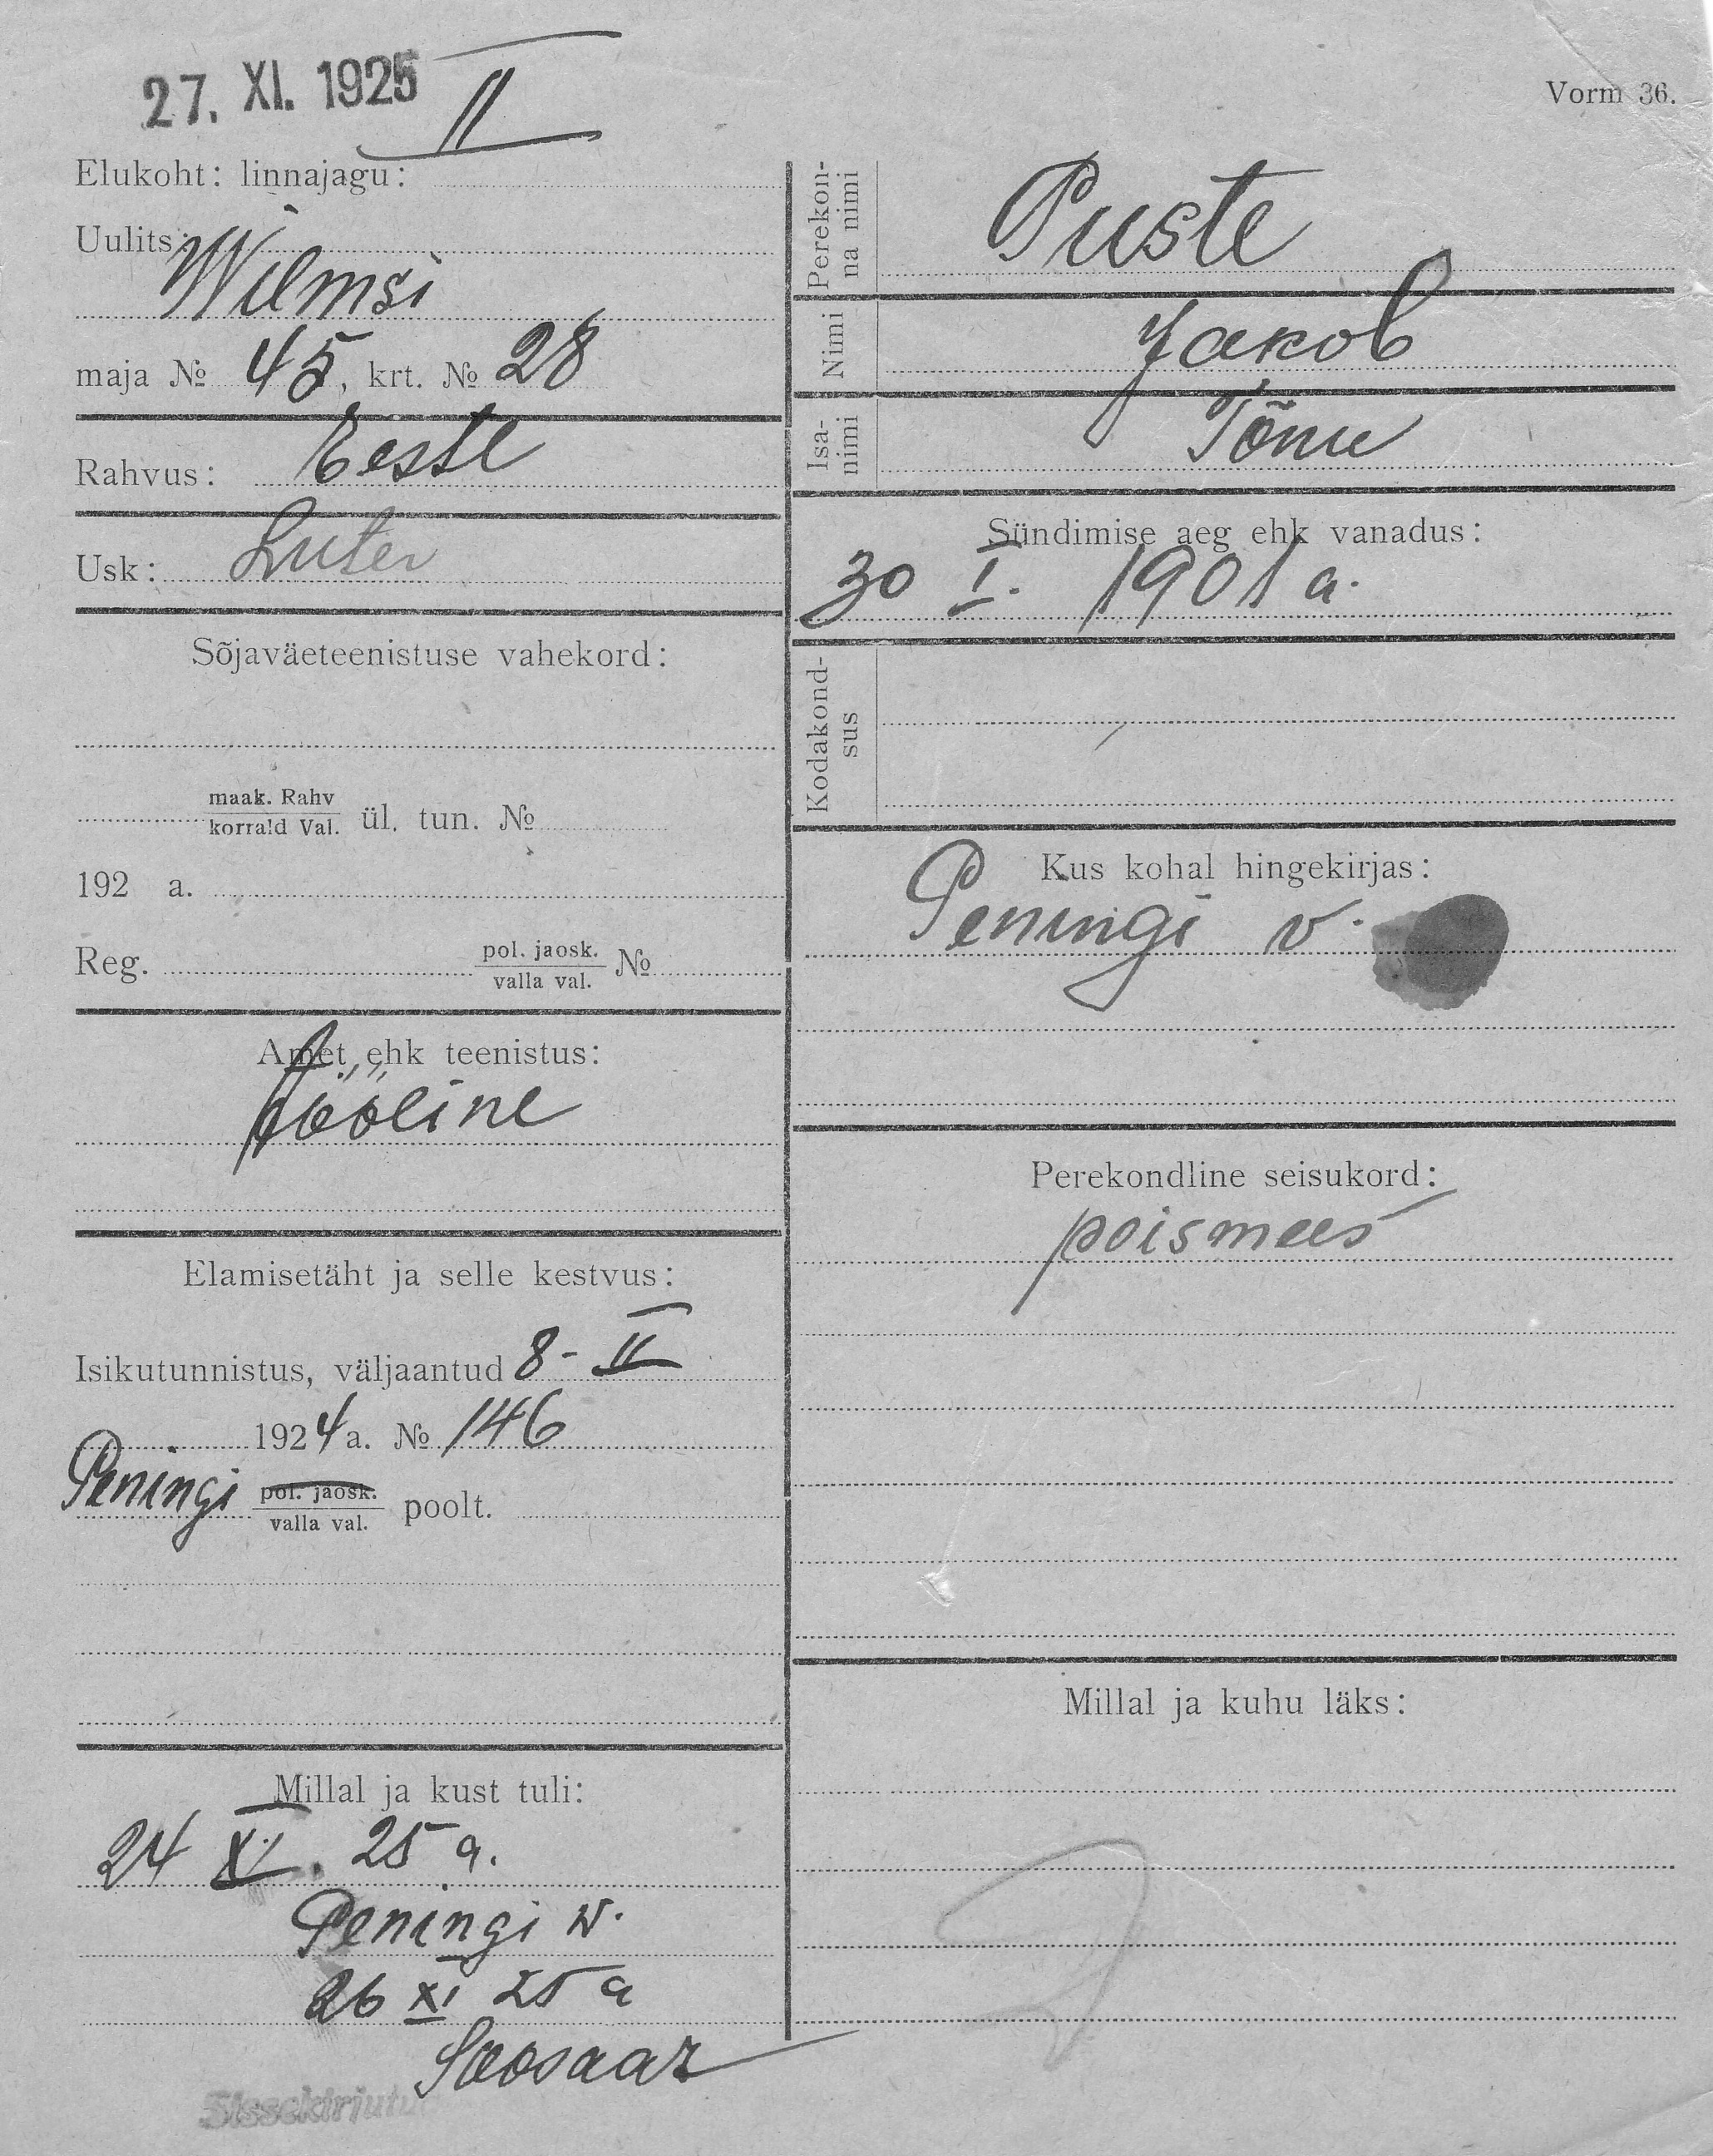 27. XI. 1925 II
Vorm 36.
Elukoht: linnajagu:
Uulits:
Wilmsi
maja № 45, krt. № 28
Rahvus: Eesti
Usk: Luter
Sõjaväeteenistuse vahekord:
maak. Rahv
korrald Val. ül. tun. №
192 a.
Reg. pol. jaosk.
valla val. №
Amet ehk teenistus:
Tööline
Elamisetäht ja selle kestvus:
Isikutunnistus, väljaantud 8 - II
1924 a. № 146
Peningi pol. jaosk.
valla val. poolt.
Millal ja kust tuli:
24 XI. 25 a.
Peningi w.
26 XI 25 a
Soosaar
Sissekirjutud
Perekon-
na nimi
Puste
Nimi
Jakob
Isa-
nimi
Tõnu
Sündimise aeg ehk vanadus:
30 I. 1901 a.
Kodakond-
sus
Kus kohal hingekirjas:
Peningi v.
Perekondline seisukord:
poismees
Millal ja kuhu läks: